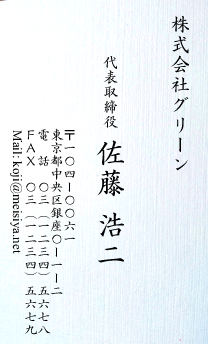 株式会社グリーン
代表取締役
佐藤浩二
〒一〇四-〇〇六一
東京都中央区銀座〇-一-二
電話 〇三(一二三四)五六七八
FAX 〇三(一二三四)五六七九
Mail: koji@meisiya.net